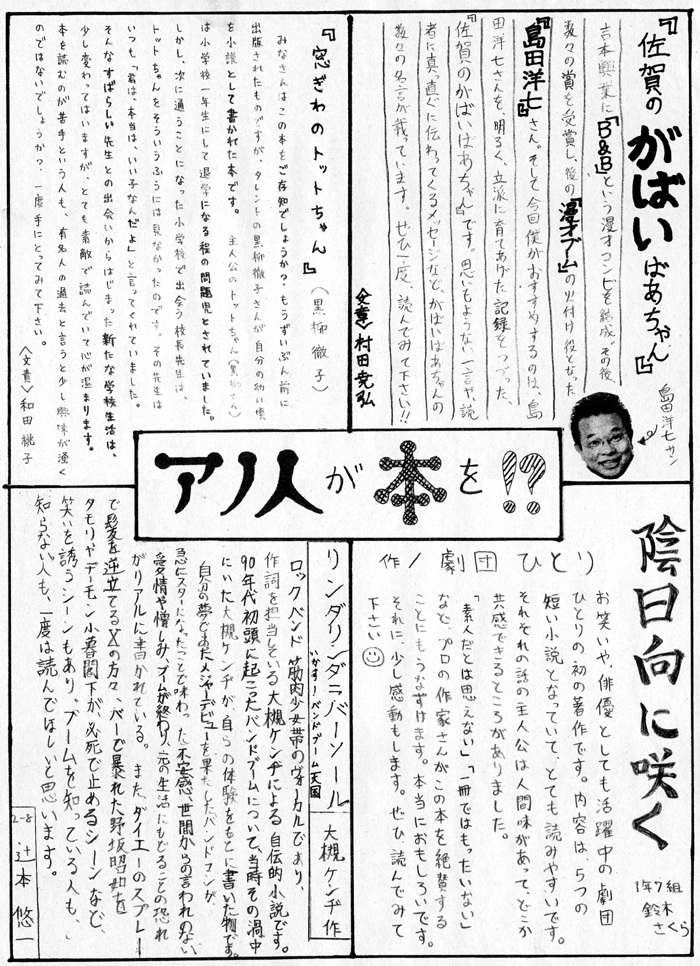 『佐賀のがばいばあちゃん』
島田洋七サン
吉本興業に『B&B』という漫才コンビを結成。その後、
数々の賞を受賞し、後の『漫才ブーム』の火付け役となった
『島田洋七』さん。そして今回僕がおすすめするのは、島
田洋七さんを、明るく、立派に育てあげた記録をつづった、
『佐賀のがばいばあちゃん』です。思いもよらない一言や、読
者に真っ直ぐに伝わってくるメッセージなど、がばいばあちゃんの
数々の名言が載っています。ぜひ一度、読んでみて下さい!!
〈文責〉村田尭弘
『窓ぎわのトットちゃん』
(黒柳徹子)
みなさんはこの本をご存知でしょうか?もうずいぶん前に
出版されたものですが、タレントの黒柳徹子さんが自分の幼い頃
を小説として書かれた本です。主人公のトットちゃん(黒柳さん)
は小学校一年生にして退学になる程の問題児とされていました。
しかし、次に通うことになった小学校で出会う校長先生は、
トットちゃんをそういうふうには見なかったのです。その先生は
いつも「君は、本当は、いい子なんだよ」と言ってくれていました。
そんなすばらしい先生との出会いからはじまった新たな学校生活は、
少し変わってはいますが、とても素敵で読んでいて心が温まります。
本を読むのが苦手という人も、有名人の過去と言うと少し興味が湧く
のではないでしょうか?一度手にとってみて下さい。
〈文責〉和田桃子
アノ人が本を!?
陰日向に咲く
1年7組
鈴木さくら
作/劇団ひとり
お笑いや、俳優としても活躍中の劇団
ひとりの初の著作です。内容は、5つの
短い小説となっていて、とても読みやすいです。
それぞれの話の主人公は人間味があって、どこか
共感できるところがありました。
「素人だとは思えない」「一冊ではもったいない」
など、プロの作家さんがこの本を絶賛する
ことにもうなずけます。本当におもしろいです。
それに、少し感動もします。ぜひ読んでみて
下さい
リンダリンダラバーソール
いかす!バンドブーム天国
大槻ケンヂ作
ロックバンド筋肉少女帯のヴォーカルであり、
作詞を担当している大槻ケンヂによる自伝的小説です。
90年代初頭に起こったバンドブームについて、当時その渦中
にいた大槻ケンヂが、自らの体験をもとに書いた物です。
自分の夢であったメジャーデビューを果たしたバンドマンが、
急にスターになったことで味わった不安感、世間からの言われのない
愛情や憎しみ、ブームが終わり、元の生活にもどることの恐れ
がリアルに書かれている。また、ダイエーのスプレー
で髪を逆立てるXの方々、バーで暴れた野坂昭如を
タモリやデーモン小暮閣下が必死で止めるシーンなど、
笑いを誘うシーンもあり、ブームを知っている人も、
知らない人も、一度は読んでほしいと思います。
2-8
辻本悠一